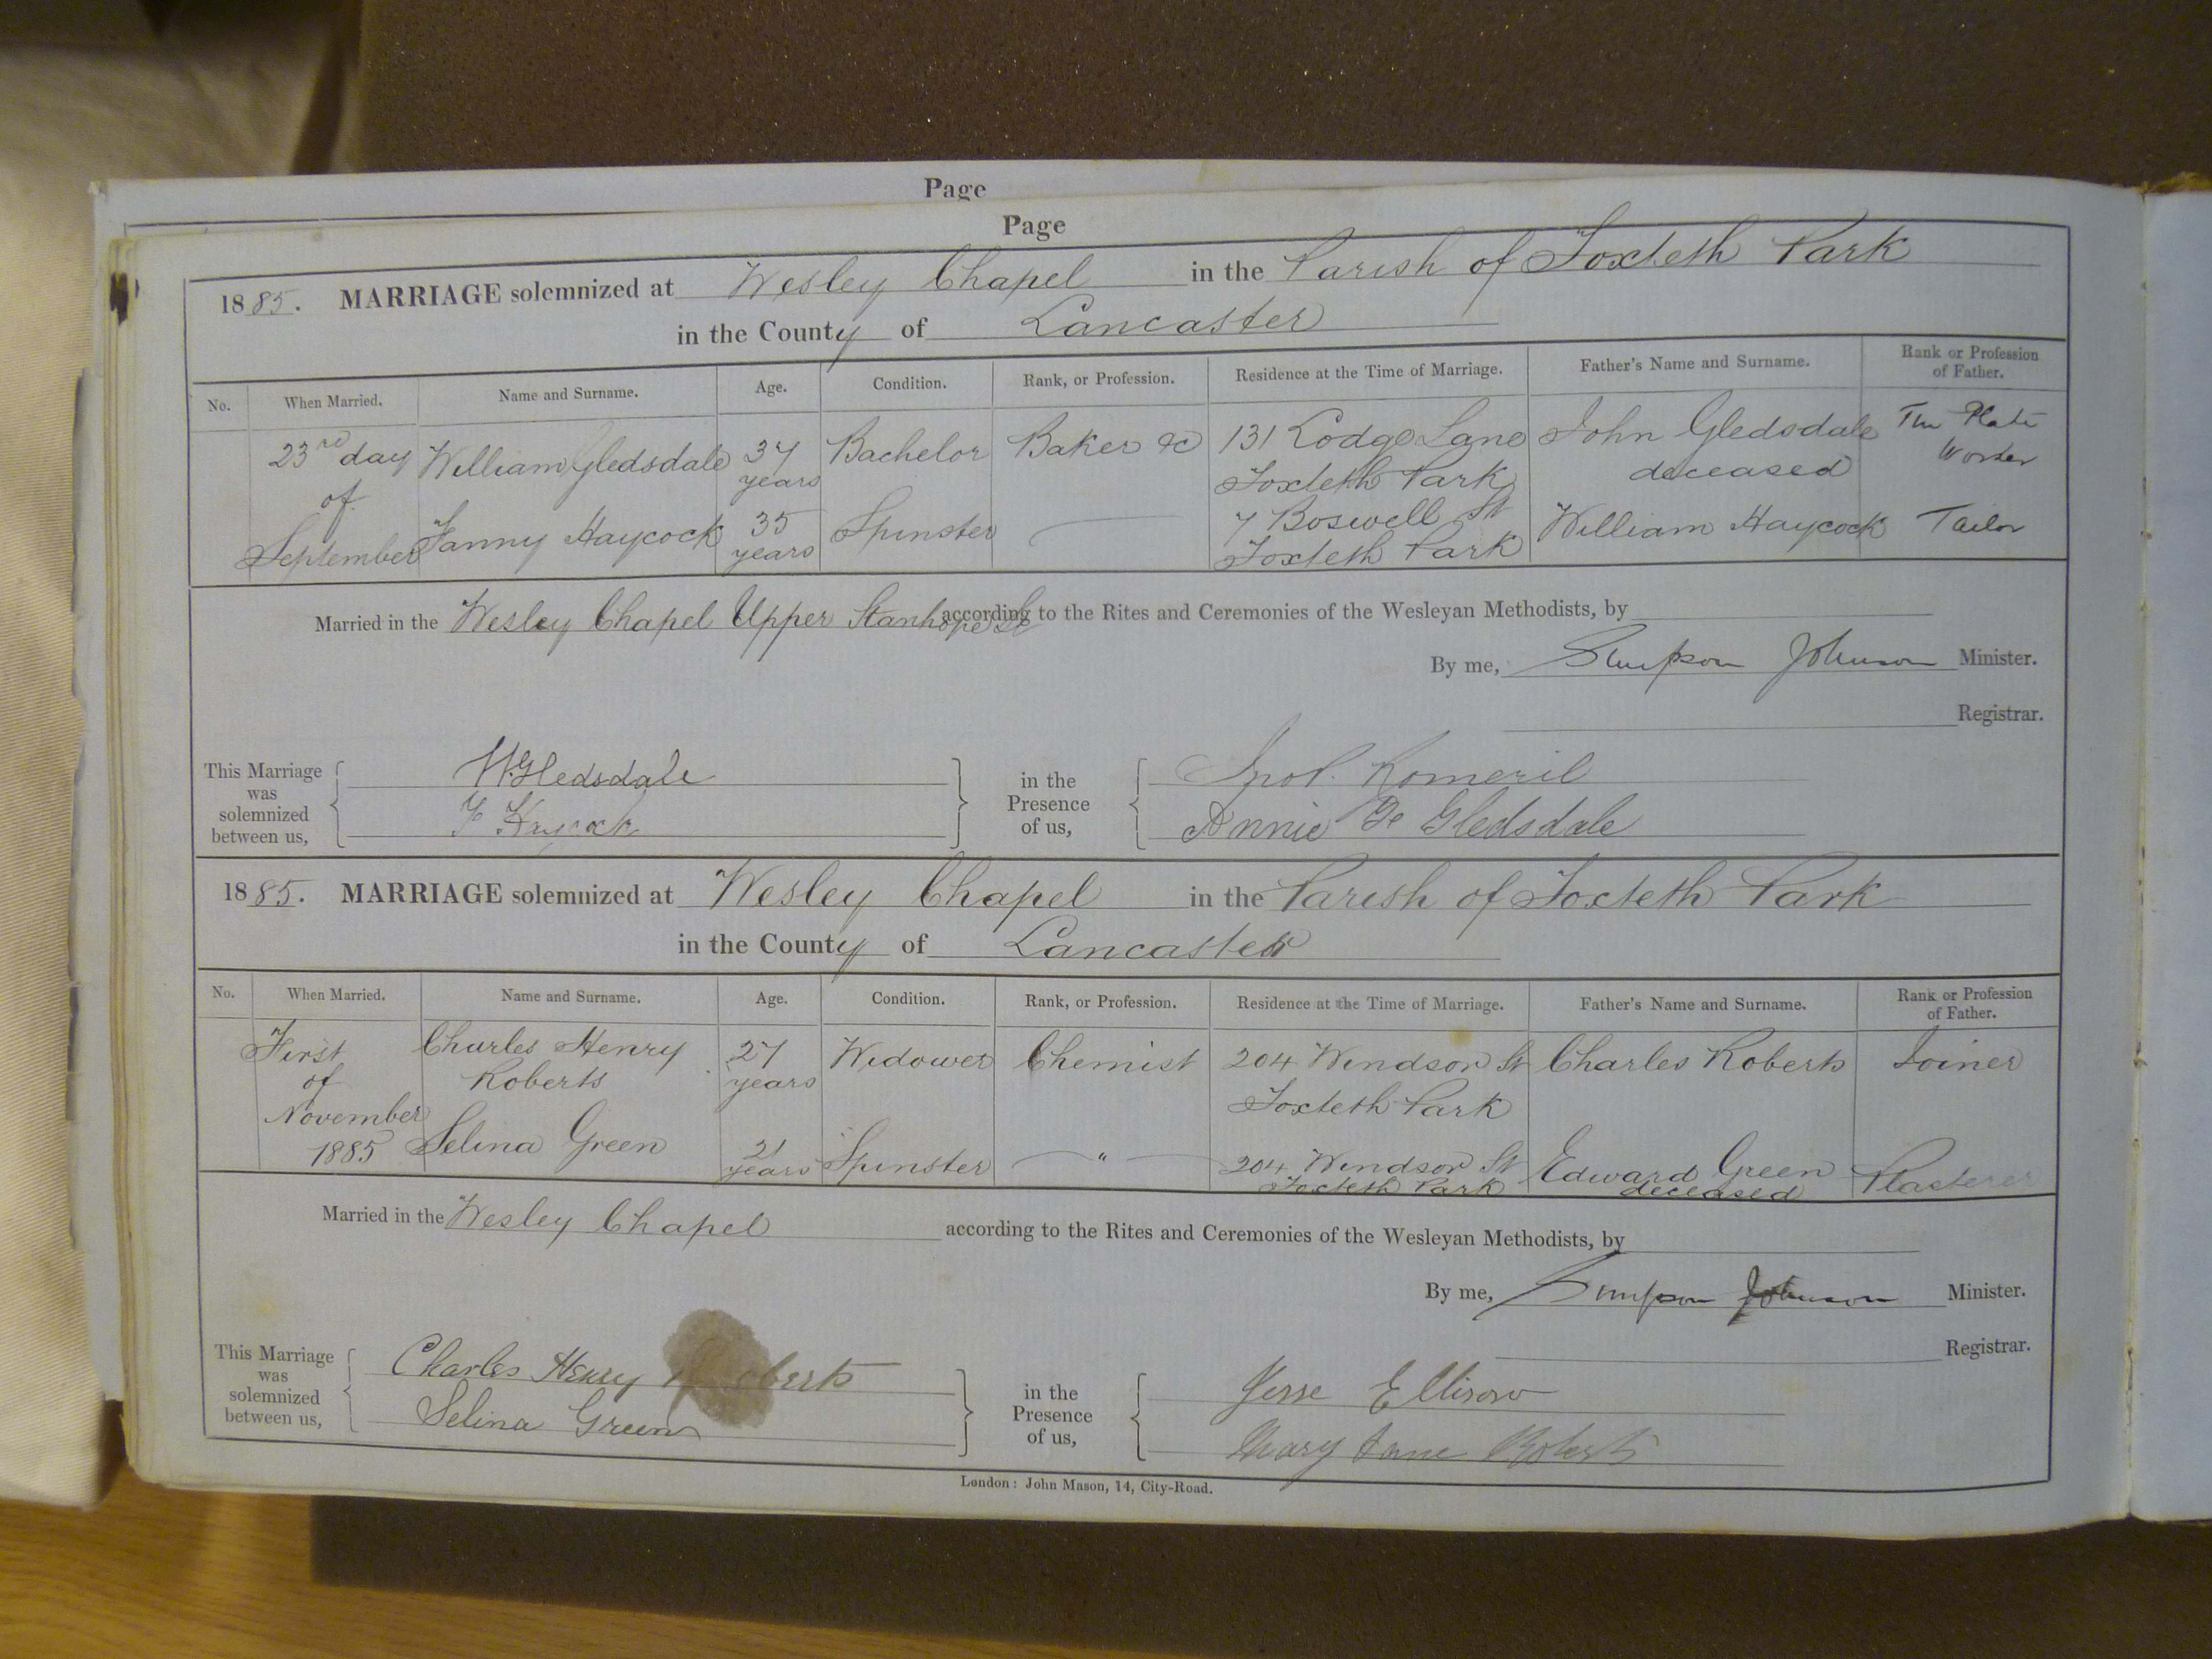 Page
Page
1885. MARRIAGE solemnized at Wesley Chapel in the Parish of Toxteth Park
in the County of Lancaster
No. When Married. Name and Surname. Age. Condition. Rank, or Profession. Residence at the Time of Marriage. Father's Name and Surname. Rank or Profession of Father.
23rd day of September William Gledsdale 37 years Bachelor Baker &c 131 Lodge Lane Toxteth Park John Gledsdale deceased Tin Plate Worker
Fanny Haycock 35 years Spinster 7 Boswell St Toxteth Park William Haycock Tailor
Married in the Wesley Chapel Upper Stanhope St according to the Rites and Ceremonies of the Wesleyan Methodists, by
By me, Simpson Johnson Minister.
Registrar.
This Marriage was solemnized between us, W. Gledsdale in the Presence of us, Romeril
F Haycock Annie Gledsdale
1885. MARRIAGE solemnized at Wesley Chapel in the Parish of Toxteth Park
in the County of Lancaster
No. When Married. Name and Surname. Age. Condition. Rank, or Profession. Residence at the Time of Marriage. Father's Name and Surname. Rank or Profession of Father.
First of November 1885 Charles Henry Roberts 27 years Widower Chemist 204 Windsor St Toxteth Park Charles Roberts Joiner
Selina Green 21 years Spinster " 204 Windsor St Toxteth Park Edward Green deceased Plasterer
Married in the Wesley Chapel according to the Rites and Ceremonies of the Wesleyan Methodists, by
By me, Simpson Johnson Minister.
Registrar.
This Marriage was solemnized between us, Charles Henry Roberts in the Presence of us, Jesse Ellison
Selina Green Mary Jane Roberts
London: John Mason, 14, City-Road.